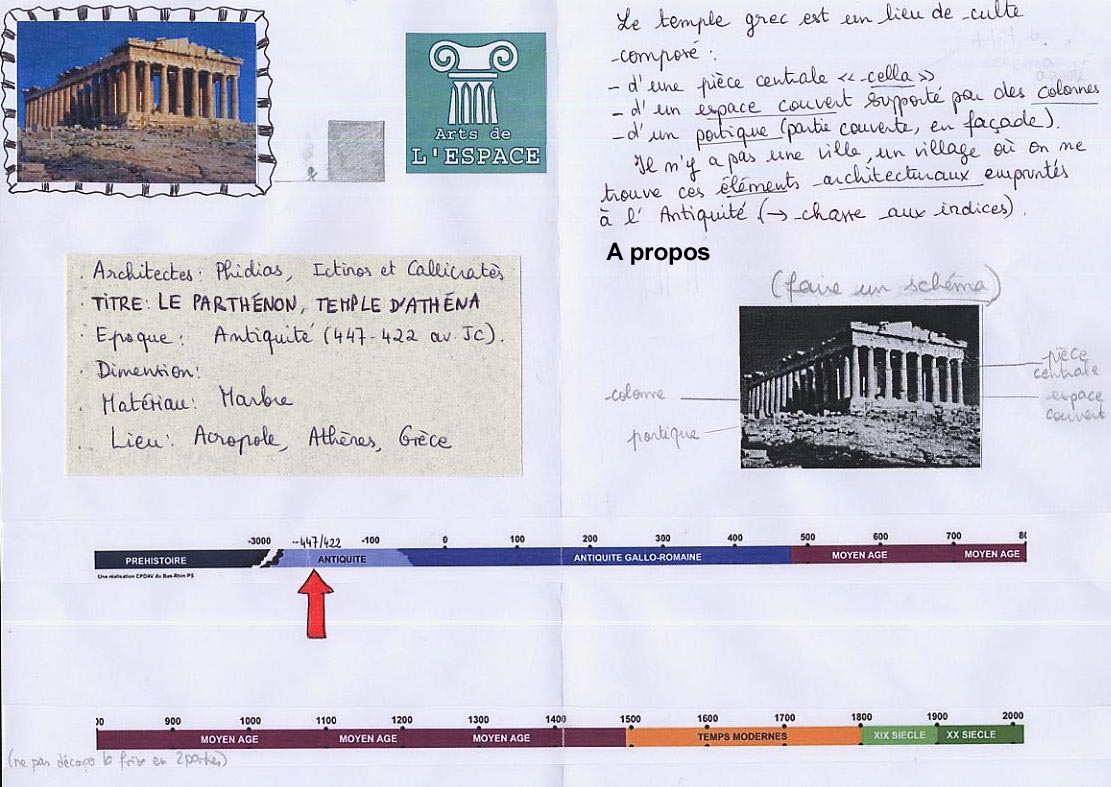 Arts de
L'ESPACE
Le temple grec est un lieu de culte
composé :
- d'une pièce centrale « cella »
- d'un espace couvert supporté par des colonnes
- d'un portique (partie couverte, en façade).
Il n'y a pas une ville, un village où on ne
trouve ces éléments architecturaux empruntés
à l'Antiquité (→ chasse aux indices).
A propos
(faire un schéma)
colonne
portique
pièce
centrale
espace
couvert
. Architectes: Phidias, Ictinos et Callicratès
. TITRE: LE PARTHÉNON, TEMPLE D'ATHÉNA
. Epoque: Antiquité (447-422 av. JC).
. Dimention:
. Matériau: Marbre
. Lieu: Acropole, Athènes, Grèce
-3000 -447/422 -100 0 100 200 300 400 500 600 700 80
PREHISTOIRE ANTIQUITE ANTIQUITE GALLO-ROMAINE MOYEN AGE MOYEN AGE
Une réalisation CPDAV du Bas-Rhin PS
00 900 1000 1100 1200 1300 1400 1500 1600 1700 1800 1900 2000
MOYEN AGE MOYEN AGE MOYEN AGE TEMPS MODERNES XIX SIECLE XX SIECLE
(ne pas la frise en 2 parties)